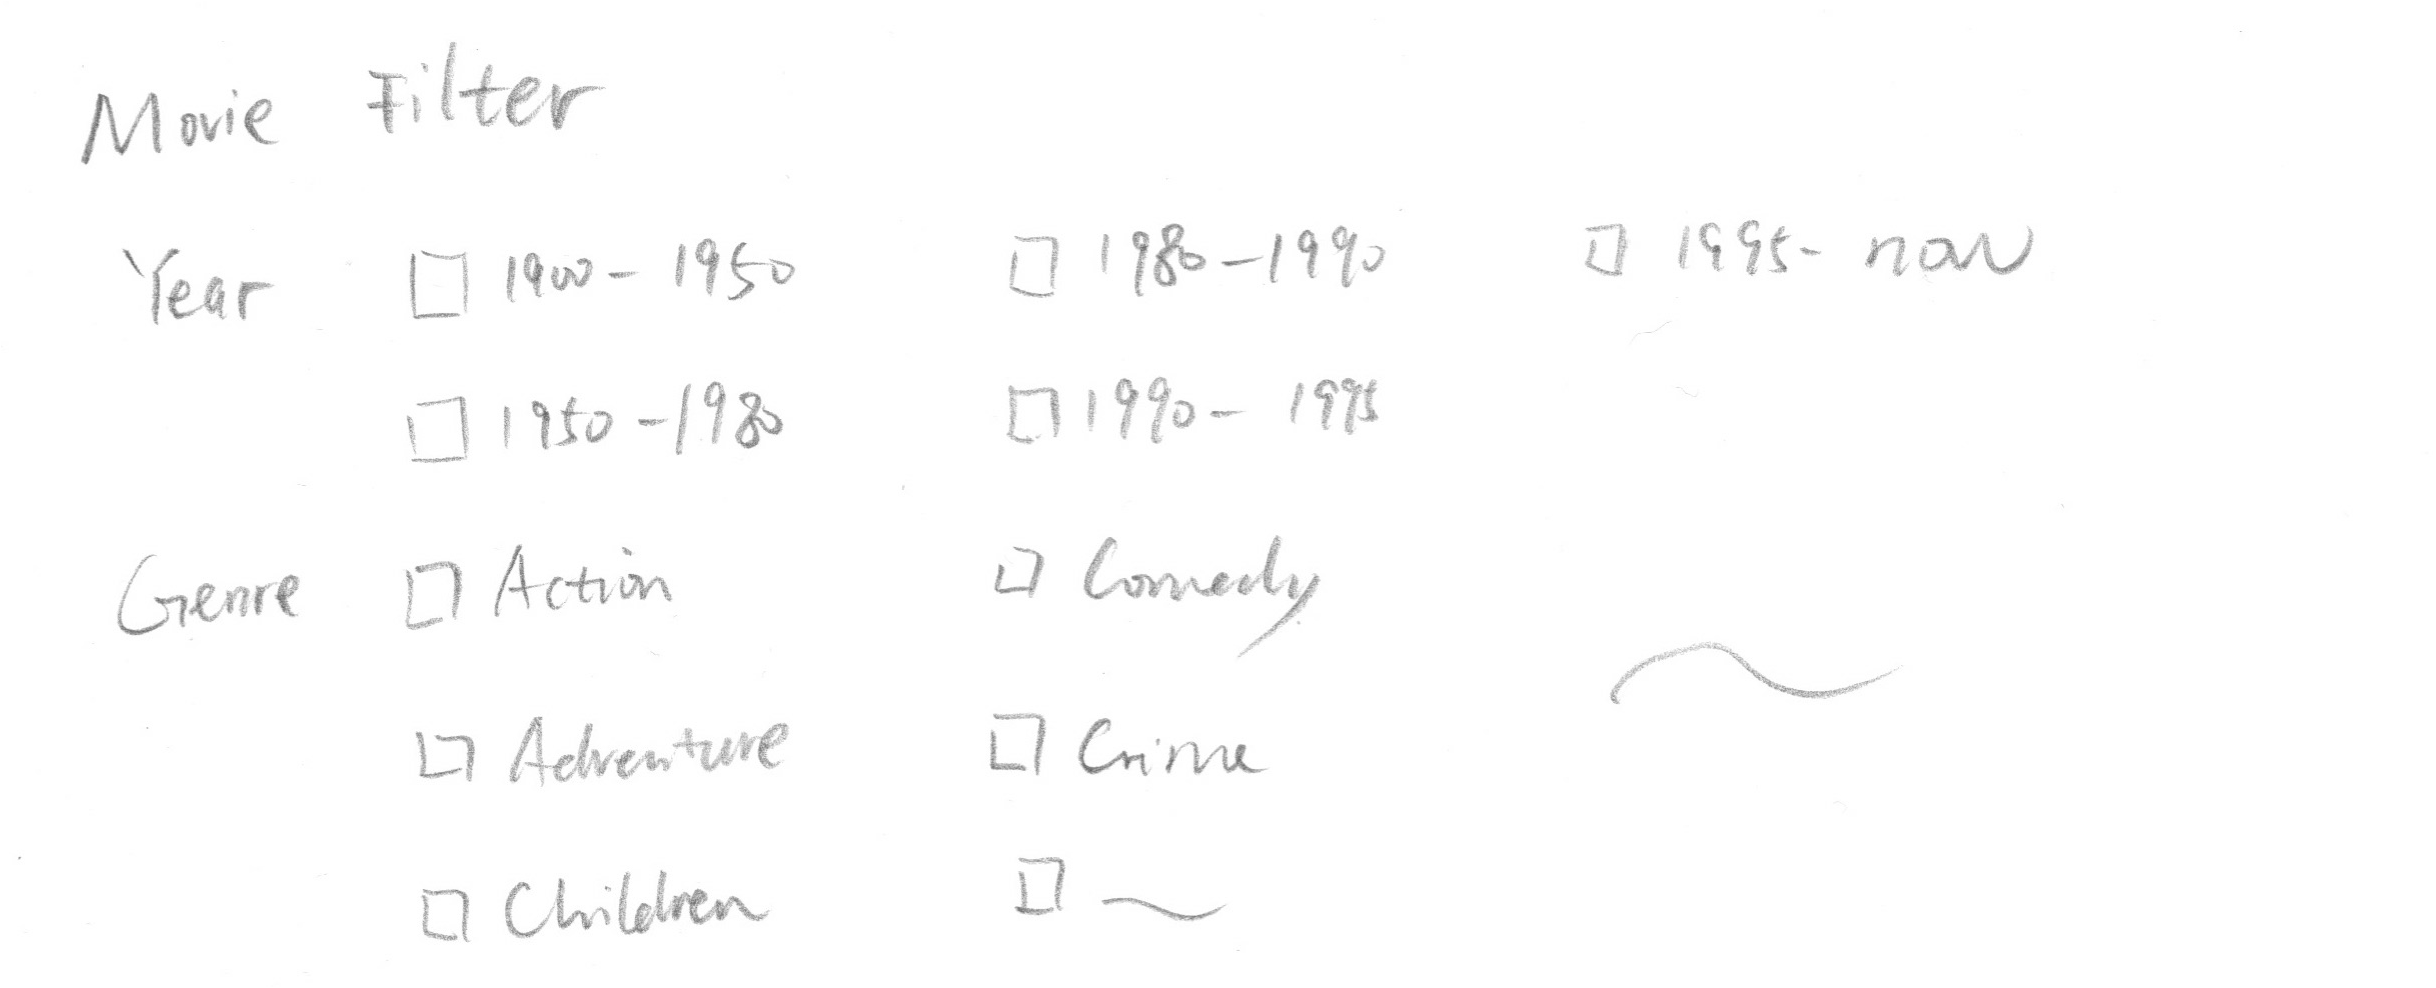 Movie Filter
Year 1900-1950 1980-1990 1995-now
1950-1980 1990-1995
Genre Action Comedy
Adventure Crime
Children